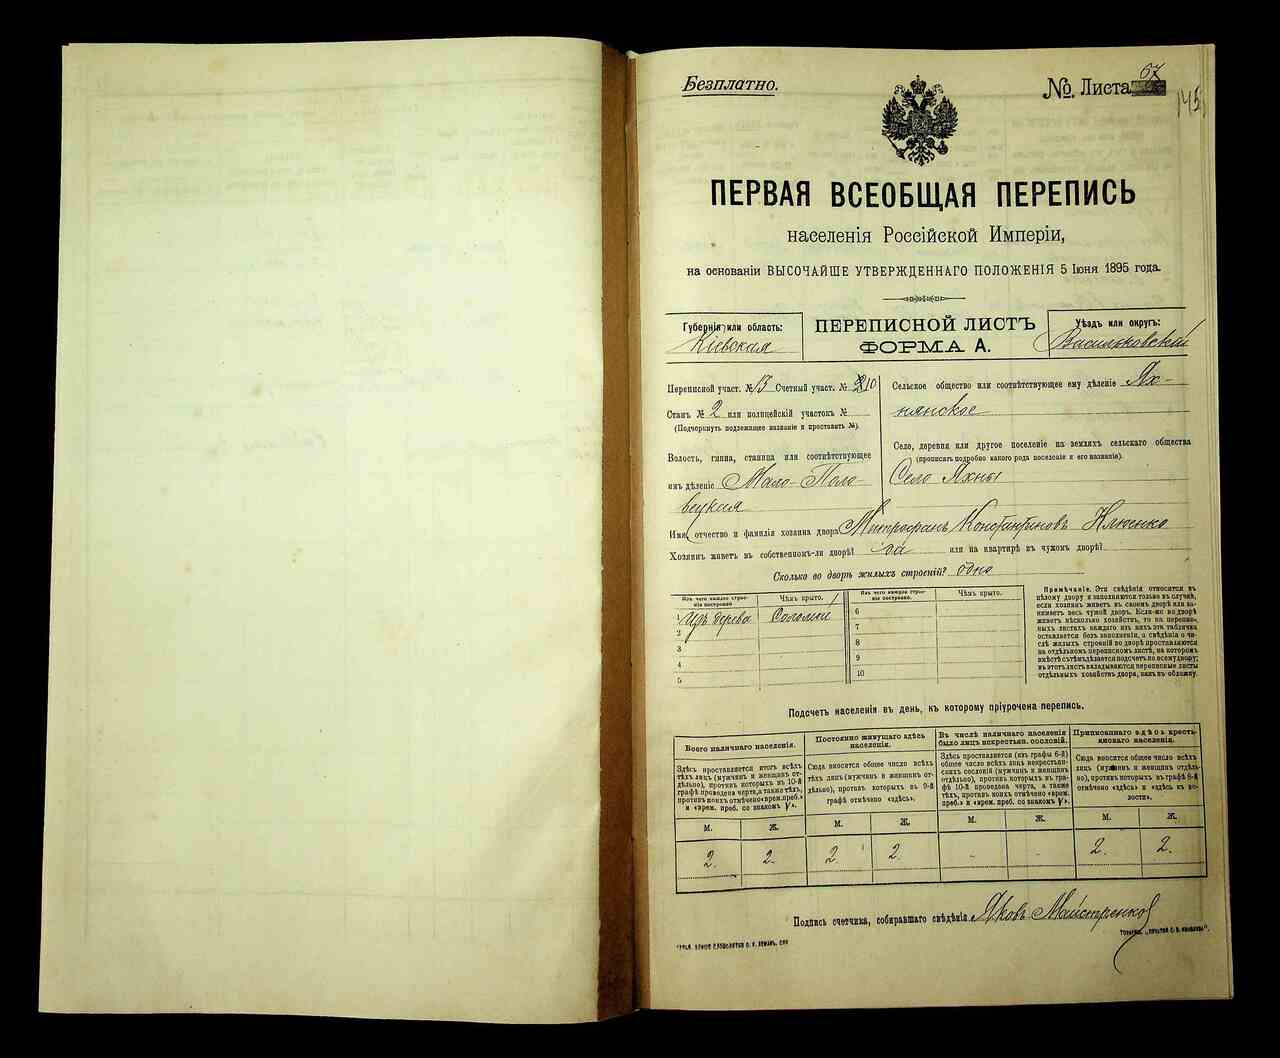 Безплатно.
№. Листа 67
145
ПЕРВАЯ ВСЕОБЩАЯ ПЕРЕПИСЬ
населенія Россійской Имперіи,
на основаніи ВЫСОЧАЙШЕ УТВЕРЖДЕННАГО ПОЛОЖЕНІЯ 5 Іюня 1895 года.
Губернія или область:
Кіевская
ПЕРЕПИСНОЙ ЛИСТЪ
ФОРМА А.
Уѣздъ или округъ:
Васильковскій
Переписной участ. № 13 Счетный участ. № 210
Станъ № 2 или полицейскій участокъ №
(Подчеркнуть подлежащее названіе и проставить №).
Волость, гмина, станица или соотвѣтствующее
имъ дѣленіе Мало-Поло-
вецкая
Сельское общество или соотвѣтствующее ему дѣленіе Ях-
нянское
Село, деревня или другое поселеніе на земляхъ сельскаго общества
(прописать подробно какого рода поселеніе и его названіе).
Село Яхны
Имя, отчество и фамилія хозяина двора Митрофанъ Константиновъ Клюенко
Хозяинъ живетъ въ собственномъ-ли дворѣ? да или на квартирѣ въ чужомъ дворѣ?
Сколько во дворѣ жилыхъ строеній? одно
Изъ чего каждое строе-
ніе построено
Чѣмъ крыто.
1 Изъ дерева Соломой
2
3
4
5
Изъ чего каждое строе-
ніе построено.
Чѣмъ крыто.
6
7
8
9
10
Примѣчаніе. Эти свѣдѣнія относятся къ
цѣлому двору и заполняются только въ случаѣ,
если хозяинъ живетъ въ своемъ дворѣ или за-
нимаетъ весь чужой дворъ. Если-же во дворѣ
живетъ нѣсколько хозяйствъ, то на перепис-
ныхъ листахъ каждаго изъ нихъ эта табличка
оставляется безъ заполненія, а свѣдѣнія о чи-
слѣ жилыхъ строеній во дворѣ проставляются
на отдѣльномъ переписномъ листѣ, на которомъ
вмѣстѣ съ тѣмъ дѣлается подсчетъ по всему двору;
въ этотъ листъ вкладываются переписные листы
отдѣльныхъ хозяйствъ двора, какъ въ обложку.
Подсчетъ населенія въ день, къ которому пріурочена перепись.
Всего наличнаго населенія.
Здѣсь проставляется итогъ всѣхъ
тѣхъ лицъ (мужчинъ и женщинъ от-
дѣльно), противъ которыхъ въ 10-й
графѣ проведена черта, а также тѣхъ,
противъ коихъ отмѣчено «врем. преб.»
и «врем. преб. со знакомъ V».
Постоянно живущаго здѣсь
населенія.
Сюда вносится общее число всѣхъ
тѣхъ лицъ (мужчинъ и женщинъ от-
дѣльно), противъ которыхъ въ 9-й
графѣ отмѣчено «здѣсь».
Въ числѣ наличнаго населенія
было лицъ некрестьян. сословій.
Здѣсь проставляется (изъ графы 6-й)
общее число всѣхъ лицъ некрестьян-
скихъ сословій (мужчинъ и женщинъ
отдѣльно), противъ которыхъ въ гра-
фѣ 10-й проведена черта, а также
тѣхъ, противъ коихъ отмѣчено «врем.
преб.» и «врем. преб. со знакомъ V».
Приписаннаго здѣсь кресть-
янскаго населенія.
Сюда вносится общее число всѣхъ
лицъ (мужчинъ и женщинъ отдѣль-
но), противъ которыхъ въ графѣ 8-й
отмѣчено «здѣсь» и «здѣсь къ во-
лости».
М. Ж. М. Ж. М. Ж. М. Ж.
2. 2. 2. 2. - - 2. 2.
Подпись счетчика, собиравшаго свѣдѣнія: Яковъ Майстренко